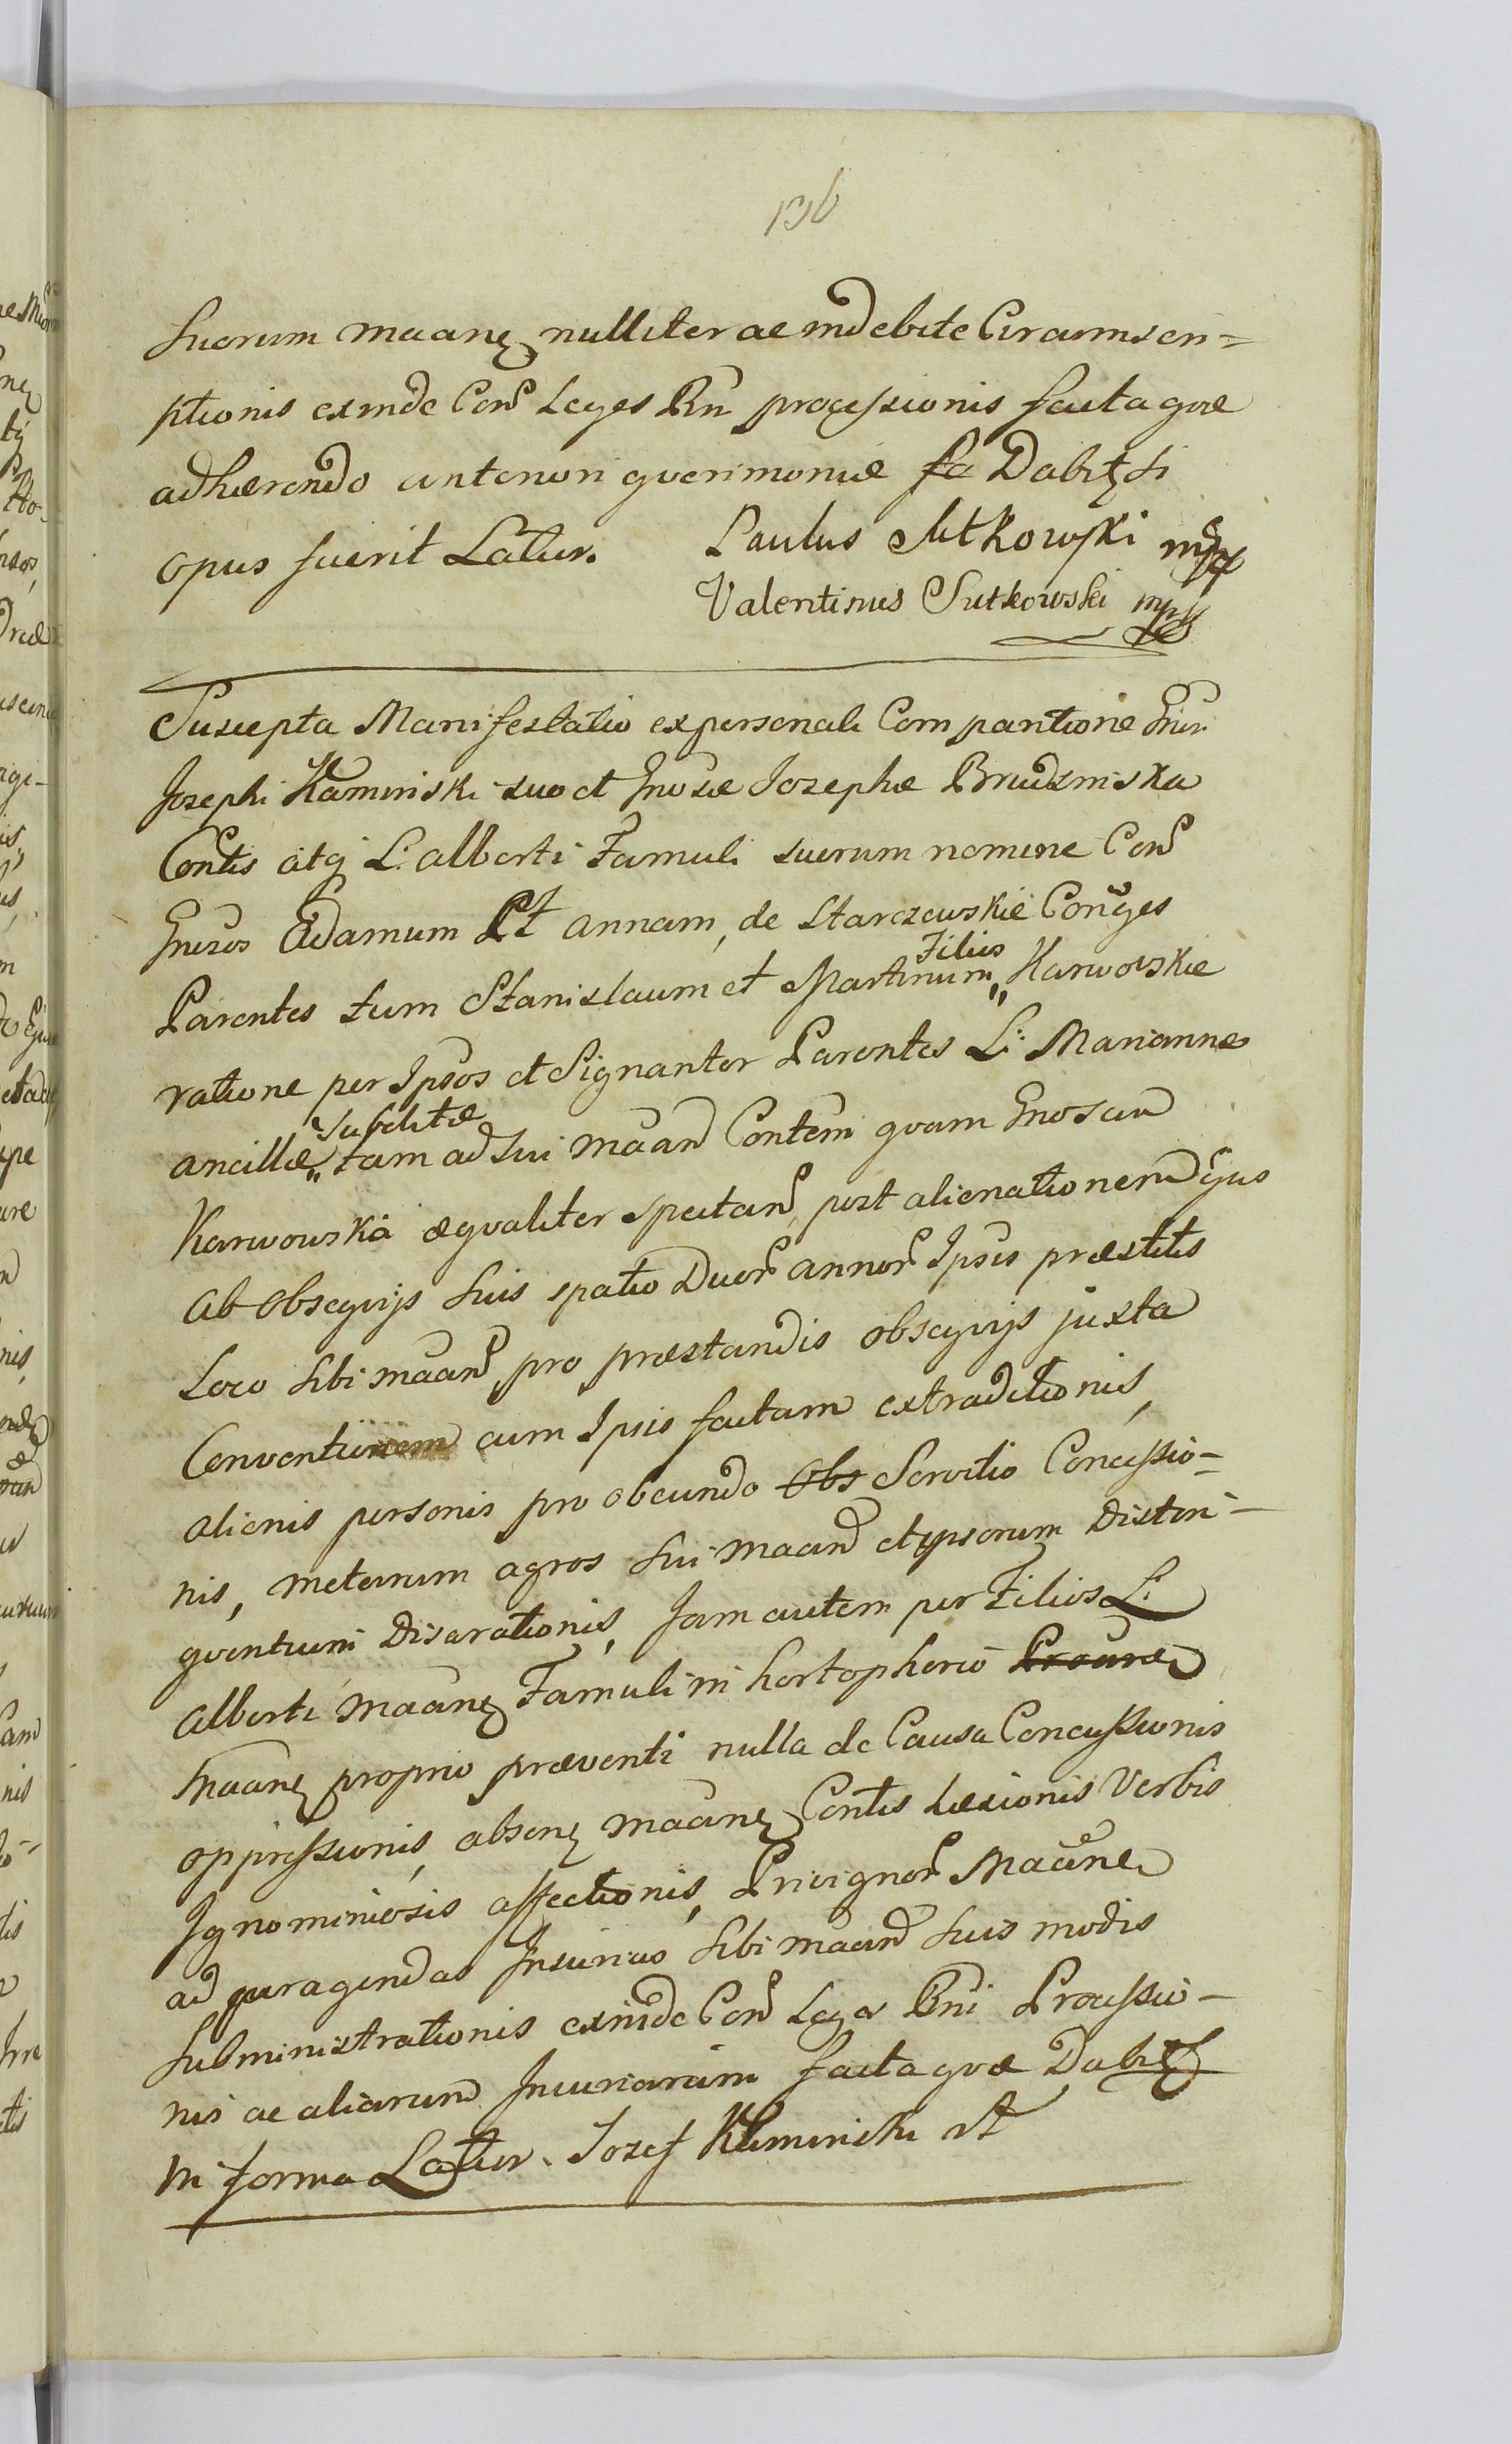 136
Suorum maanes nulliter ac indebite Circumscri=
ptionis exinde Con Leges Rn processionis facta qvæ
adhærendo anteriori qverimoniæ fa Dabit si
opus fuerit Latur. Paulus Sutkowski mpp
Valentinus Sutkowski mpp
Suscepta Manifestatio ex personali Comparitione Gnsi
Josephi Kaminski suo et Gnosæ Josephæ Brudzinska
Contis atq L. Alberti Famuli suorum nomine Con
Gnosos Adamum Et Annam, de Starczewskie Conges
Filios
Parentes tum Stanislaum et Martinum „ Karwowskie
ratione per Ipsos et Signanter Parentes L: Marianne
Subditæ
ancillæ „ tam ad sui maan Contem qvam Gnosam
Karwowska æqvaliter spectan, post alienationem Ejus
ab obseqvijs suis spatio Duor annor Ipsis præstitis
Loco sibi maan pro præstandis obseqvijs juxta
Conventionem cum Ipsis factam extraditionis,
alienis personis pro obeundo Obs Servitio Concessio=
nis, metarum agros sui maan et ipsorum Distin-
gventium Disarationis, Jam autem per Filios L:
Alberti maanes Famuli in hortopherio
maanes proprio præventi nulla de Causa Concussionis
oppressionis, absens maanes Contis Læsionis Verbis
Ignominiosis affectionis, Privignor Maane
ad peragendas Injurias sibi maan suis modis
Subministrationis exinde Con Leges Rni Processio-
nis ac aliarum Injuriarum facta qvæ Dabit
in forma Latur. Jozef Kaminski